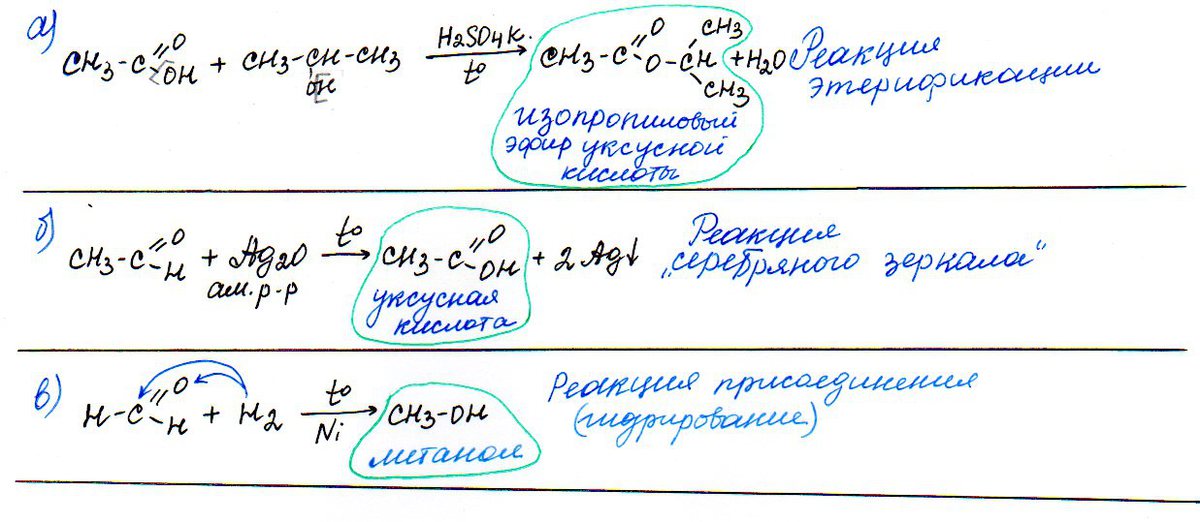 а) CH3-C=O OH + CH3-CH-CH3 OH H2SO4к. t° CH3-C=O O-CH CH3 CH3 + H2O Реакция этерификации
изопропиловый
эфир уксусной
кислоты
б) CH3-C=O H + Ag2O t° CH3-C=O OH + 2Ag↓ Реакция „серебряного зеркала“
ам. р-р
уксусная
кислота
в) H-C=O H + H2 t° Ni CH3-OH Реакция присоединения
(гидрирование)
метанол